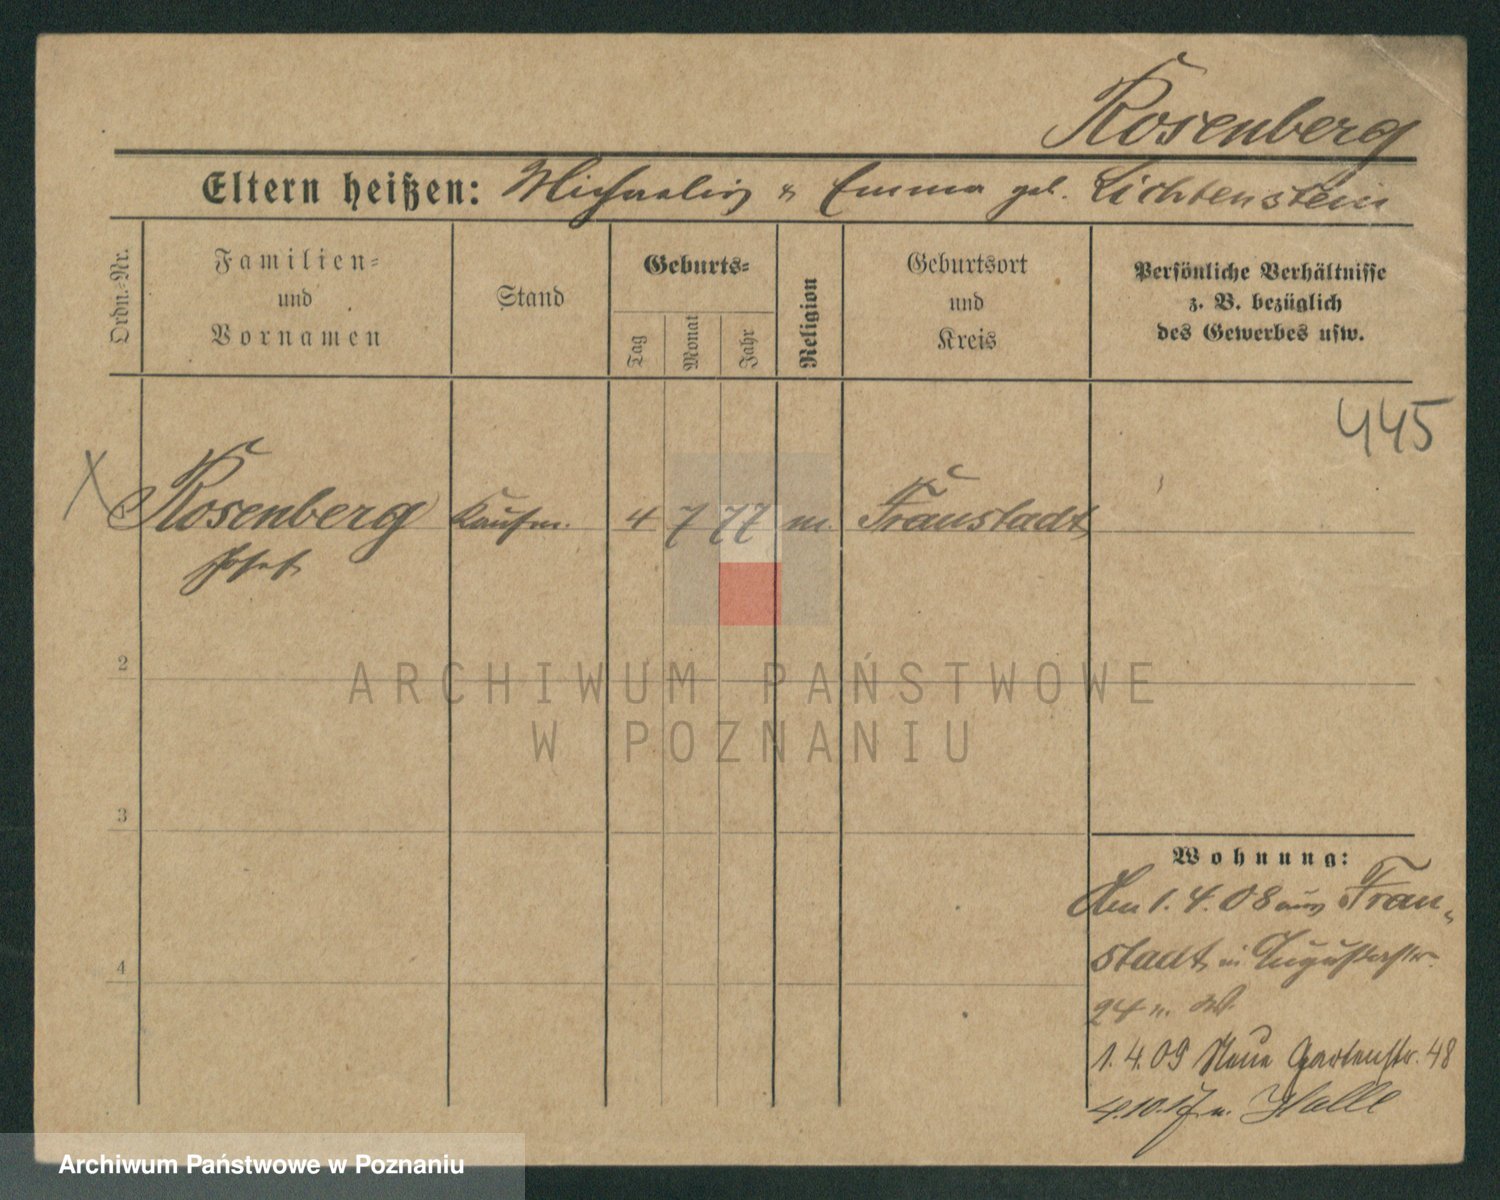 Rosenberg
Eltern heißen: Michaelis & Emma geb. Lichtenstein
Ordn.-Nr.
Familien-
und
Vornamen
Stand
Geburts-
Tag
Monat
Jahr
Religion
Geburtsort
und
Kreis
Persönliche Verhältnisse
z. B. bezüglich
des Gewerbes usw.
445
X Rosenberg Kaufm. 4 7 77 m. Fraustadt
2
3
4
Wohnung:
Am 1. 4. 08 aus Frau-
stadt in Augustastr.
24
1. 4. 09 Neue Gartenstr. 48
4.10.17 n. Halle
ARCHIWUM PAŃSTWOWE
W POZNANIU
Archiwum Państwowe w Poznaniu